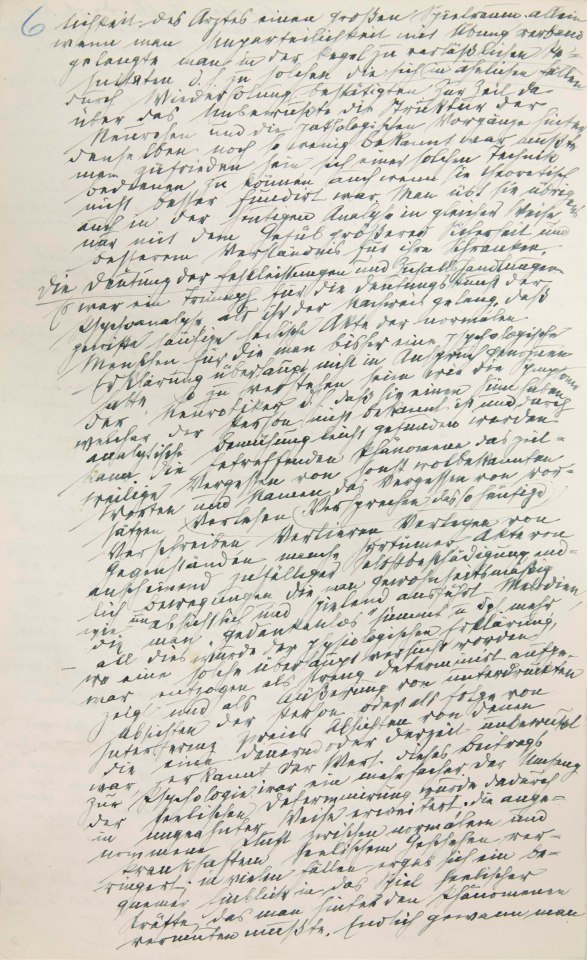 6
lichkeit des Arztes einen großen Spielraum allein
wenn man Unparteilichkeit mit Übung verband
gelangte man in der Regel zu verläßlichen Re-
sultaten d. h. zu solchen die sich in ähnlichen Fällen
durch Wiederholung bestätigten Zur Zeit da
über das Unbewußte die Struktur der
Neurosen und die pathologischen Vorgänge hinter
denselben noch so wenig bekannt war mußte
man zufrieden sein sich einer solchen Technik
bedienen zu können auch wenn sie theoretisch
nicht besser fundirt war. Man übt sie übrigens
auch in der heutigen Analyse in gleicher Weise
nur mit dem Gefühl größerer Sicherheit und
besserem Verständnis für ihre Schranken.
Die Deutung der Fehlleistungen und Zufallshandlungen
Es war ein Triumph für die Deutungskunst der
Psychoanalyse als ihr der Nachweis gelang, daß
gewisse häufige seelische Akte der normalen
Menschen für die man bisher eine psychologische
Erklärung überhaupt nicht in Anspruch genommen
hatte so zu verstehen seien wie die Symptome
der Neurotiker d. h. daß sie einen Sinn haben
welcher der Person nicht bekannt ist und durch
analytische Bemühung leicht gefunden werden
kann. Die betreffenden Phänomene das zeit-
weilige Vergessen von sonst wolbekannten
Worten und Namen das Vergessen von Vor-
sätzen Verlesen (Versprechen das so häufige)
Verschreiben Verlieren Verlegen von
Gegenständen manche Irrtümer Akte von
anscheinend zufälliger Selbstbeschädigung end-
lich Bewegungen die man gewohnheitsmäßig
wie unabsichtlich und spielend ausführt Melodien,
die man „gedankenlos" summt u dgl mehr
all dies wurde der physiologischen Erklärung,
wo eine solche überhaupt versucht worden
war entzogen als streng determinirt aufge-
zeigt und als Äußerung von unterdrückten
Absichten der Person oder als Folge von
Interferenz zweier Absichten von denen
die eine dauernd oder derzeit unbewußt
war erkannt. Der Wert dieses Beitrags
zur Psychologie war ein mehrfacher. Der Umfang
der seelischen Determinirung wurde dadurch
in ungeahnter Weise erweitert; die ange-
nommene Kluft zwischen normalem und
krankhaftem seelischem Geschehen ver-
ringert; in vielen Fällen ergab sich ein be-
quemer Einblick in das Spiel seelischer
Kräfte das man hinter den Phänomenen
vermuten mußte. Endlich gewann man